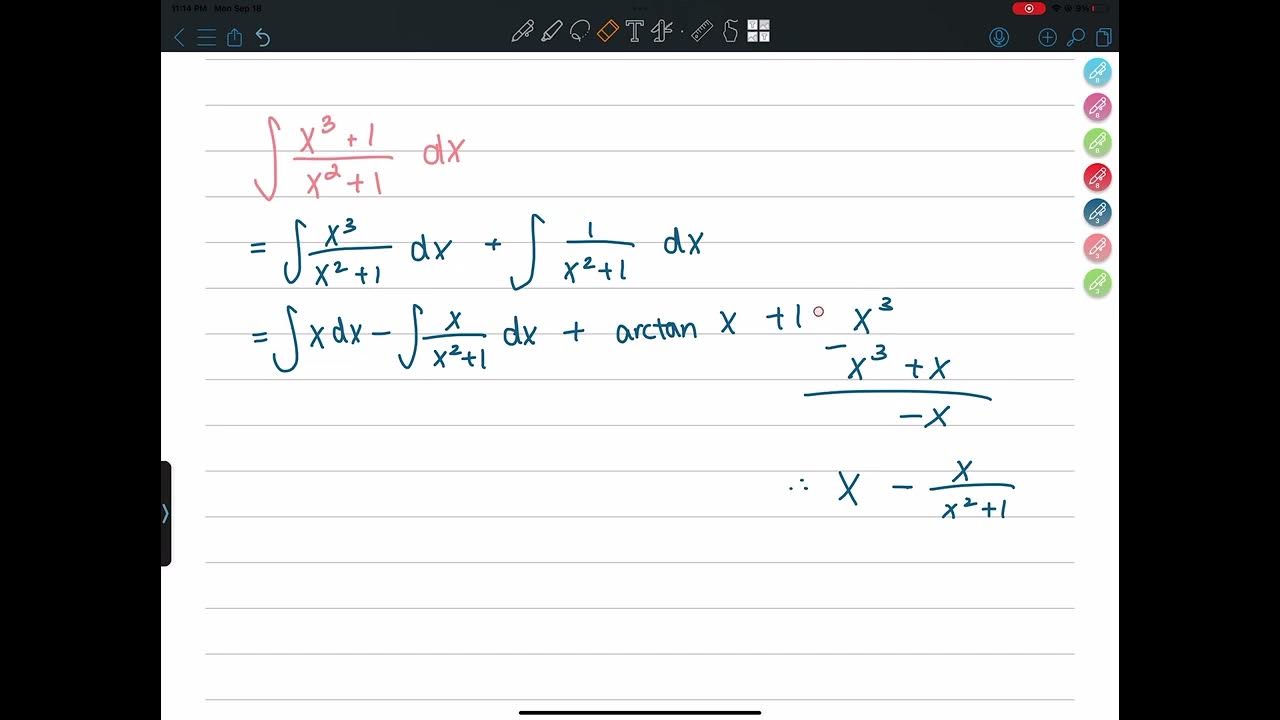 11:14 PM Mon Sep 18
9%
T
∫ (x³ + 1)/(x² + 1) dx
= ∫ x³/(x² + 1) dx + ∫ 1/(x² + 1) dx
= ∫ x dx − ∫ x/(x² + 1) dx + arctan x + 1 x³
− x³ + x
− x
∴ x − x/(x² + 1)
8
8
8
8
3
3
3